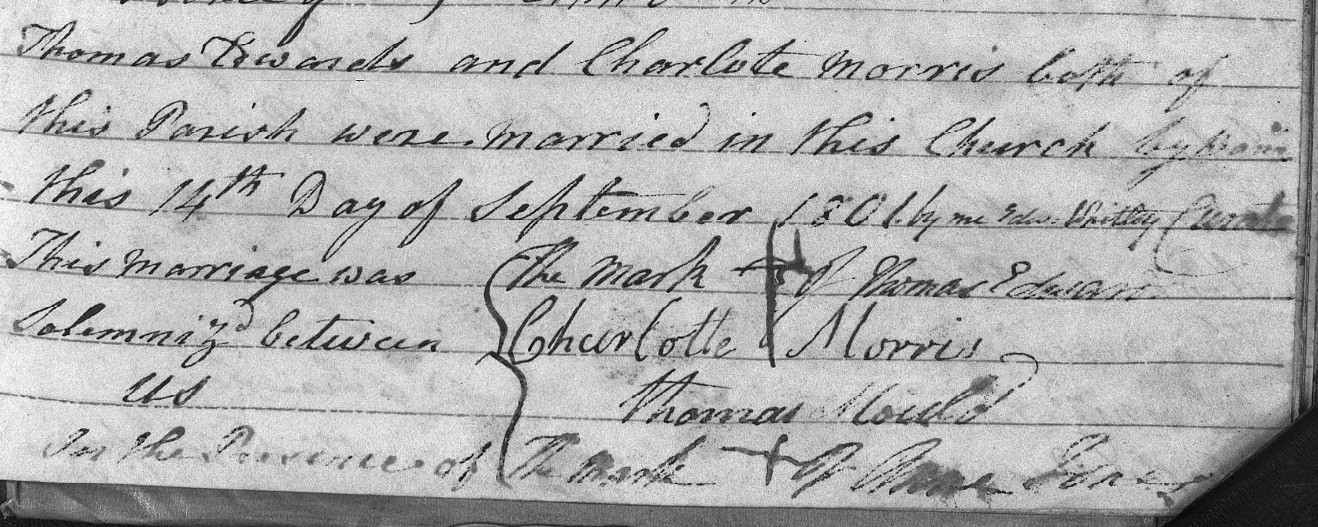 Thomas Edwards and Charlote Morris both of
this Parish were married in this Church by Bann
this 14th Day of September 1801 by me Edw. Whitley Curate
This marriage was The Mark + of Thomas Edwar
Solemniz'd between Charlotte Morris
us Thomas Mould
In the Presence of The mark + of Anne Jones